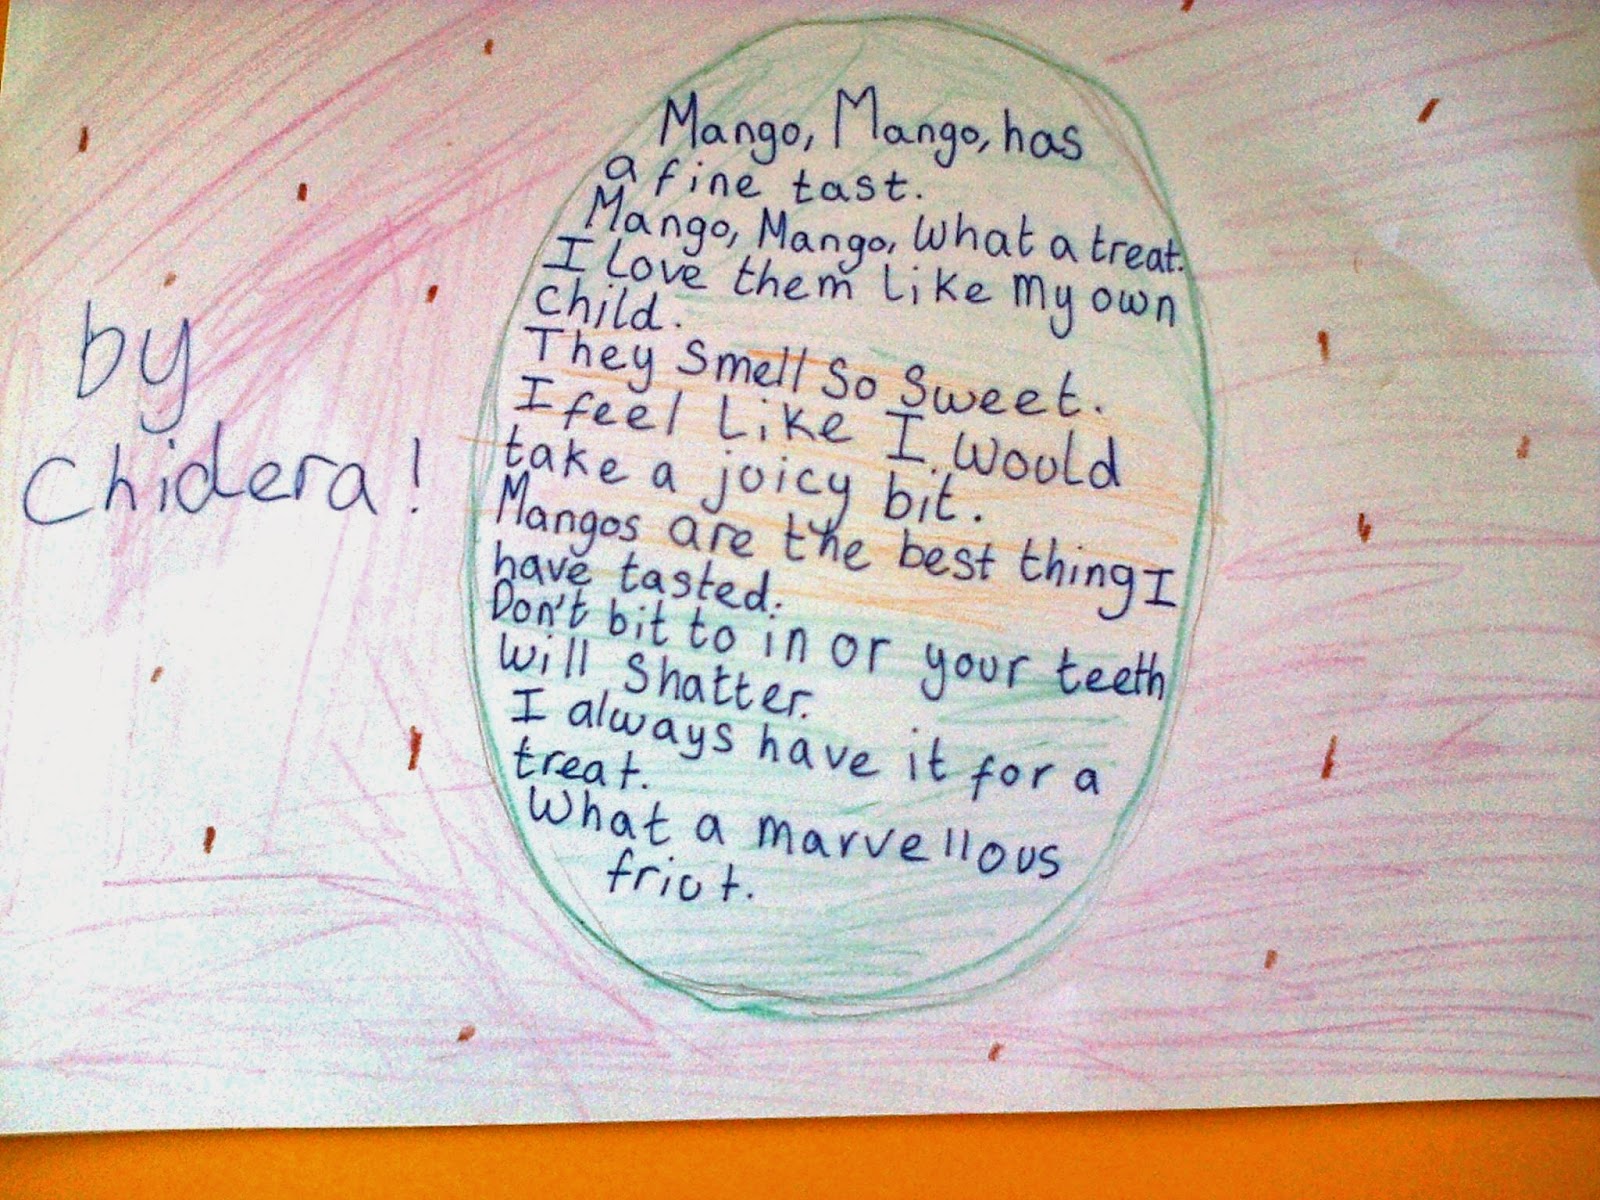 Mango, Mango, has
a fine tast.
Mango, Mango, What a treat.
I Love them Like my own
child.
They Smell So Sweet.
I feel Like I would
take a joicy bit.
Mangos are the best thing I
have tasted.
Don't bit to in or your teeth
will Shatter.
I always have it for a
treat.
What a marvellous
friut.
by
Chidera!